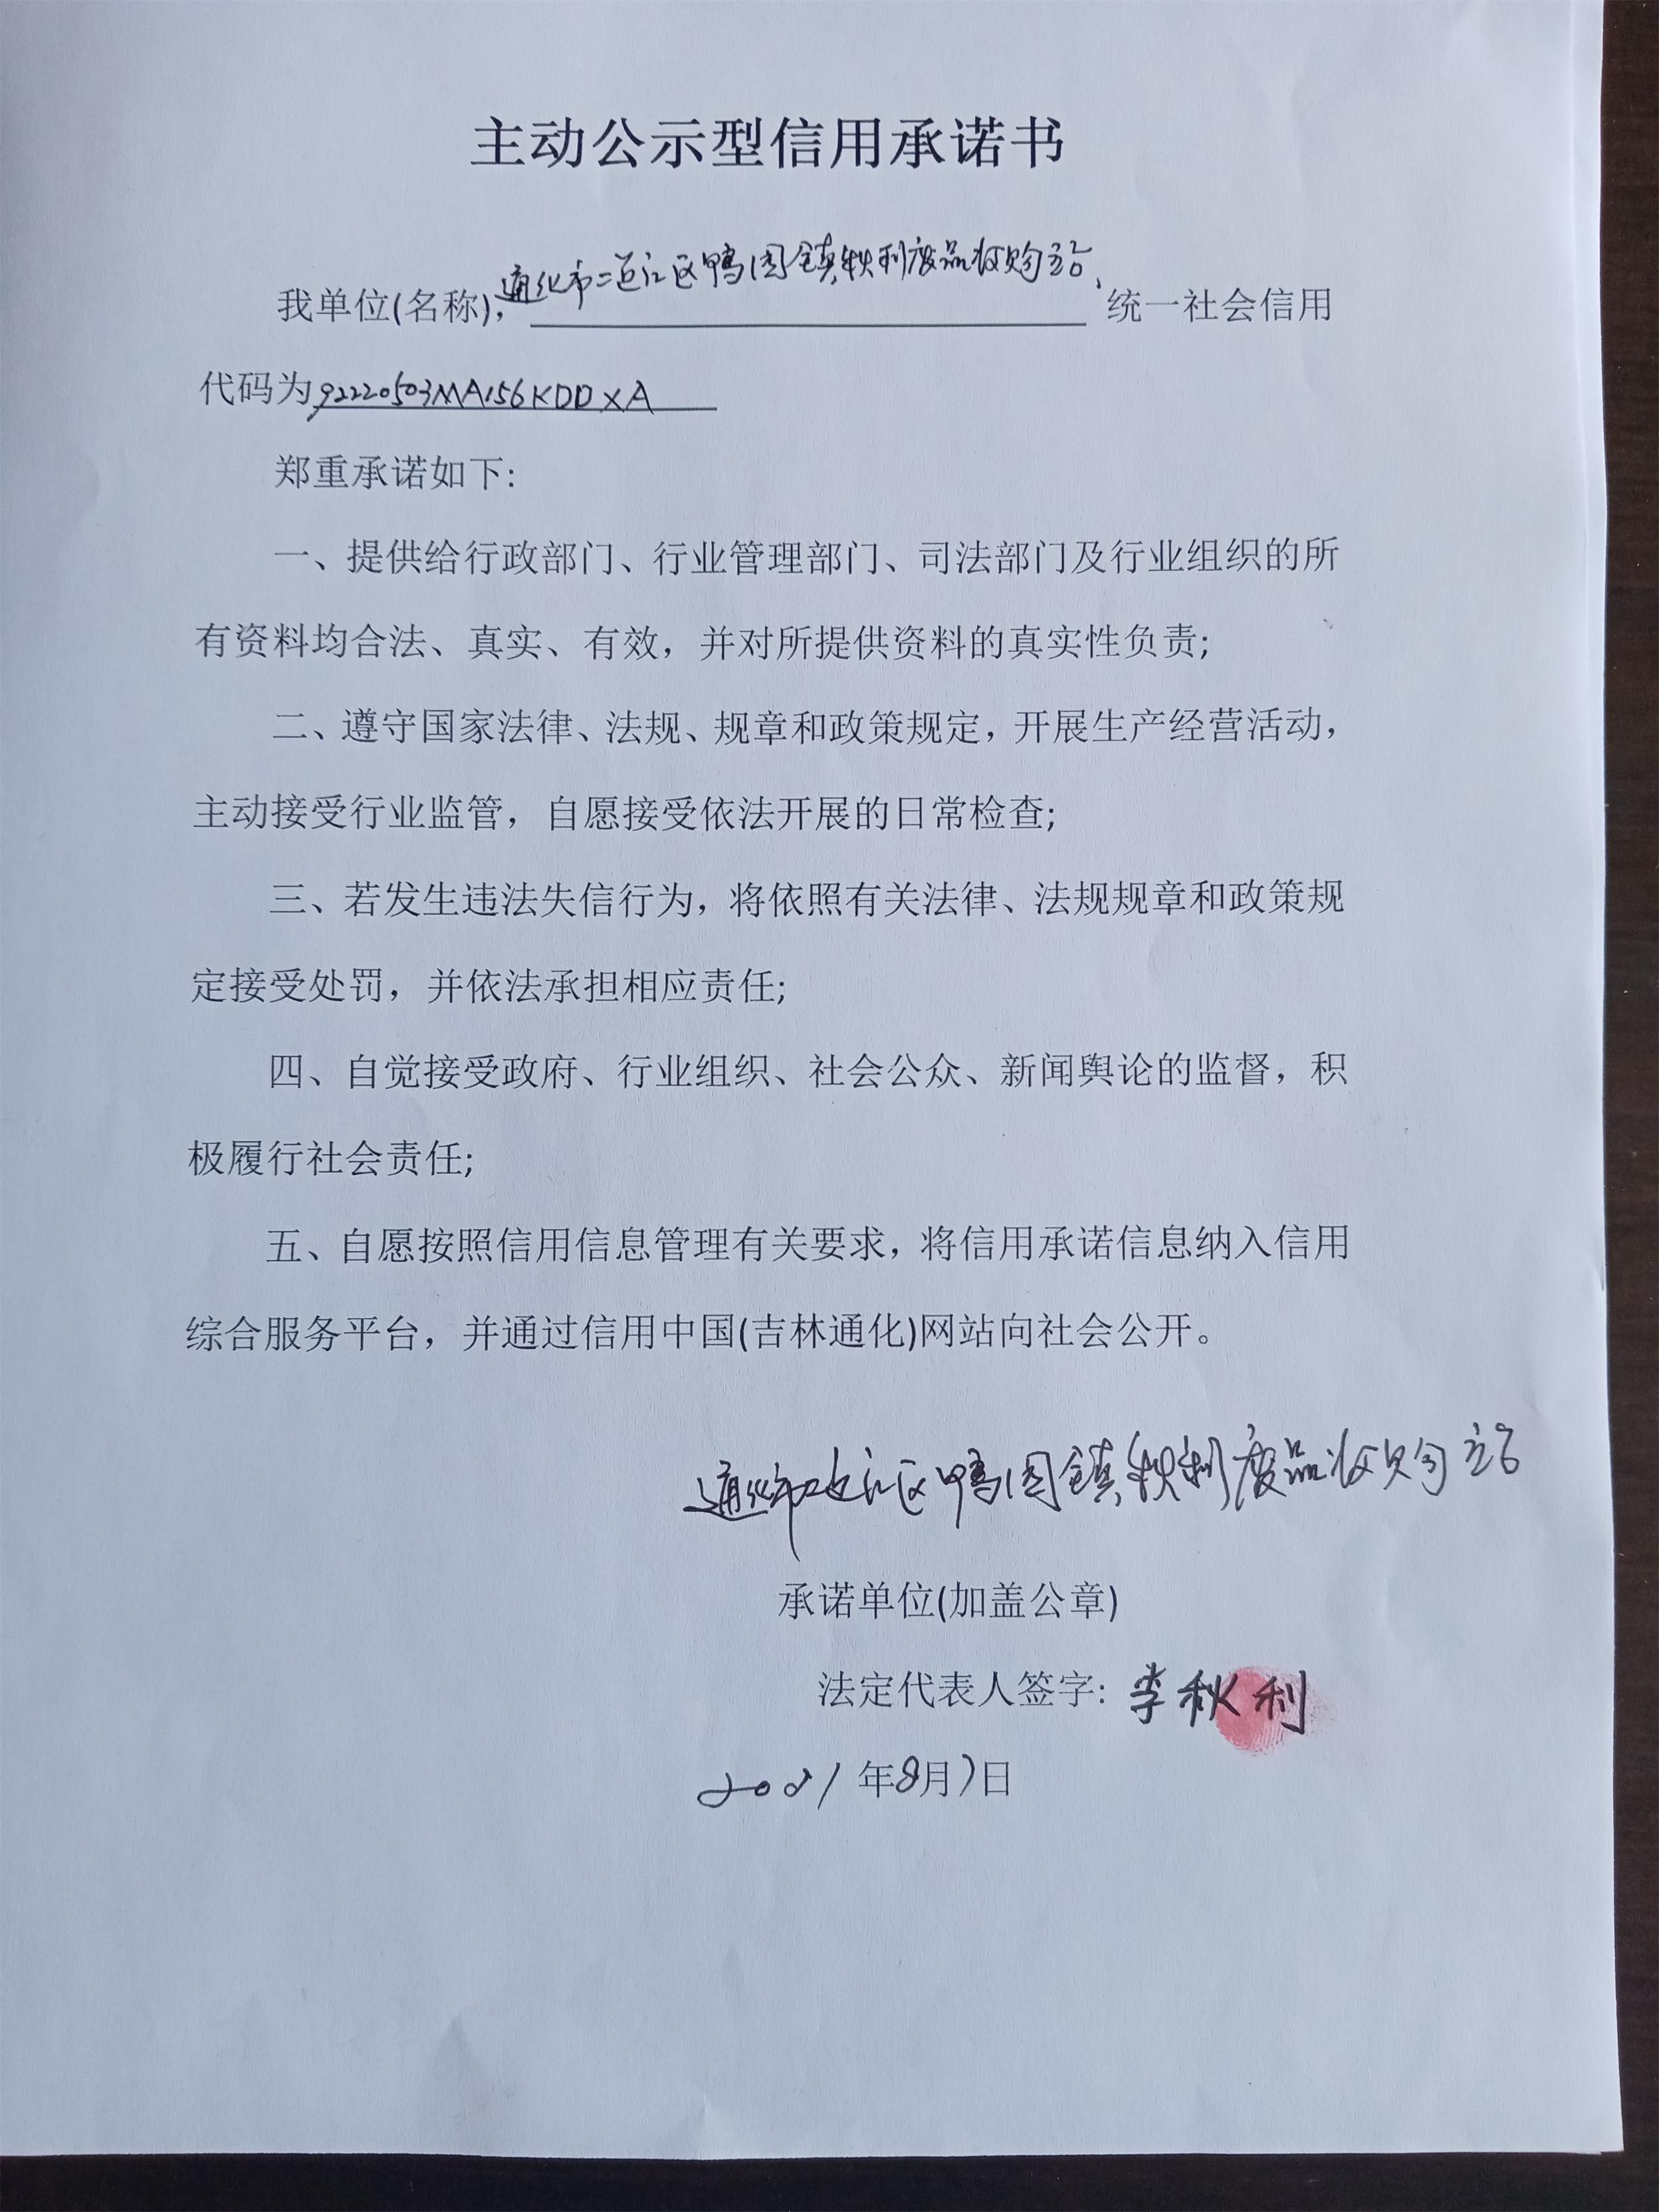 主动公示型信用承诺书
通化市二道江区鸭园镇秋利废品收购站
我单位(名称), 、统一社会信用
代码为92220503MA156KDDXA
郑重承诺如下:
一、提供给行政部门、行业管理部门、司法部门及行业组织的所
有资料均合法、真实、有效，并对所提供资料的真实性负责;
二、遵守国家法律、法规、规章和政策规定，开展生产经营活动，
主动接受行业监管，自愿接受依法开展的日常检查;
三、若发生违法失信行为，将依照有关法律、法规规章和政策规
定接受处罚，并依法承担相应责任;
四、自觉接受政府、行业组织、社会公众、新闻舆论的监督，积
极履行社会责任;
五、自愿按照信用信息管理有关要求，将信用承诺信息纳入信用
综合服务平台，并通过信用中国(吉林通化)网站向社会公开。
通化市二道江区鸭园镇秋利废品收购站
承诺单位(加盖公章)
法定代表人签字: 李秋利
2021年8月7日